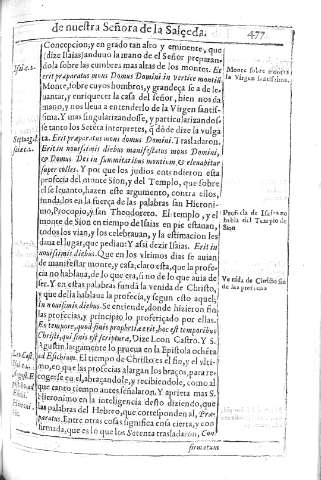 de nuestra Señora de la Salceda. 477
Concepcion; y en grado tan alto y eminente, que
(dize Isaias) anduuo la mano de el Señor preparan-
dola sobre las cumbres mas altas de los montes. Et
erit præparatus mons Domus Domini in vertice montiũ,
Monte, sobre cuyos hombros, y grandeça se a de le-
uantar, y enriquecer la casa del Señor, bien nos da
mano, y nos lleua a entenderlo de la Virgen santis-
sima. Y mas singularizandosse, y particularizando
se tanto los Setẽta interpretes, q̃ dõde dize la vulga
ta. Erit præparatus mons Domus Domini. Trasladaron.
Erit in nouissimis diebus manifestatus mons Domini,
& Domus Dei in summitatibus montium, & eleuabitur
super colles. Y por que los judios entendieron esta
profecia del monte Sion, y del Templo, que sobre
el se leuanto, hazen este argumento, contra ellos,
fundados en la fuerça de las palabras san Hieroni-
mo, Procopio, y san Theodoreto. El templo, y el
monte de Sion en tiempo de Isaias en pie estauan,
todos los vian, y los celebrauan, y la estimacion les
daua el lugar, que pedian: Y assi dezir Isaias. Erit in
nouissimis diebus. Que en los vltimos dias se auian
de manifestar monte, y casa, claro esta, que la profe-
cia no hablaua, de lo que era, si no de lo que auia de
ser. Y en estas palabras fundã la venida de Christo,
y que della hablaua la profecia, y segun esto aquel:
In nouissimis diebus. Se entiende, donde hizieron fin
las profecias, y principio lo profetiçado por ellas.
Eo tempore, quod finis prophetiæ erit, hoc est temporibus
Christi, qui finis est scripturæ, Dize Leon Castro. Y S.
Agustin largamente lo prueua en la Epistola ochẽta
ad Esichium. El tiempo de Christo es el fin, y el vlti-
mo, en que las profecias alargan los braços, para re-
cogerse en el, abraçandole, y recibiendole, como al
que tanto tiempo antes señalaron. Y aprieta mas S.
Hieronimo en la inteligencia desto diziendo, que
las palabras del Hebreo, que corresponden al, Præ-
paratus. Entre otras cosas significa cosa cierta, y con
firmada, que es lo que los Setenta trasladaron, Con
firmatum
Isaiæ. 2.
Septuag.
Isaiæ. 2.
Monte sobre montes
la Virgen santissima.
Profecia de Isaias no
habla del Templo de
Sion
Venida de Christo fin
de las profecias